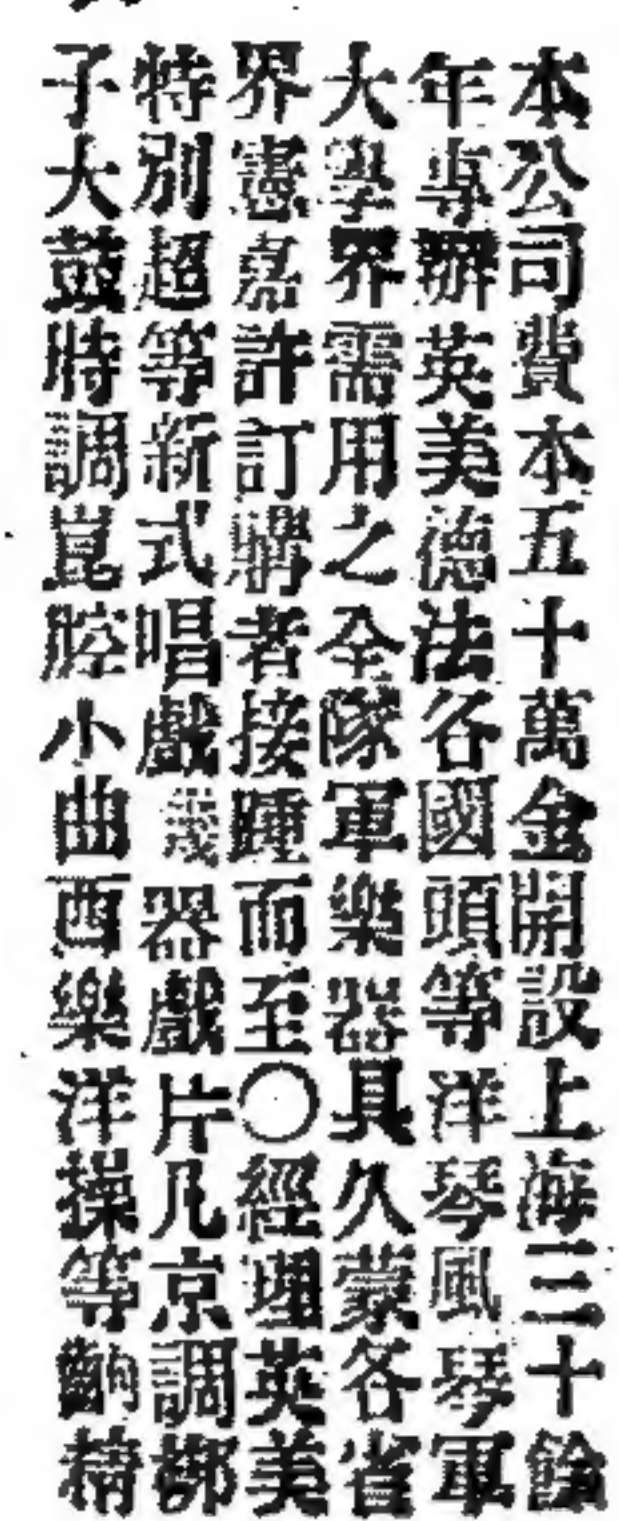 本公司費本五十萬金開設上海三十餘
年專辦英美德法各國頭等洋琴風琴軍
大學界需用之全隊軍樂器具久蒙各省
界憲嘉許訂購者接踵而至〇經理英美
特別超等新式唱戲機器戲片凡京調梆
子大鼓時調崑腔小曲西樂洋操等齣精